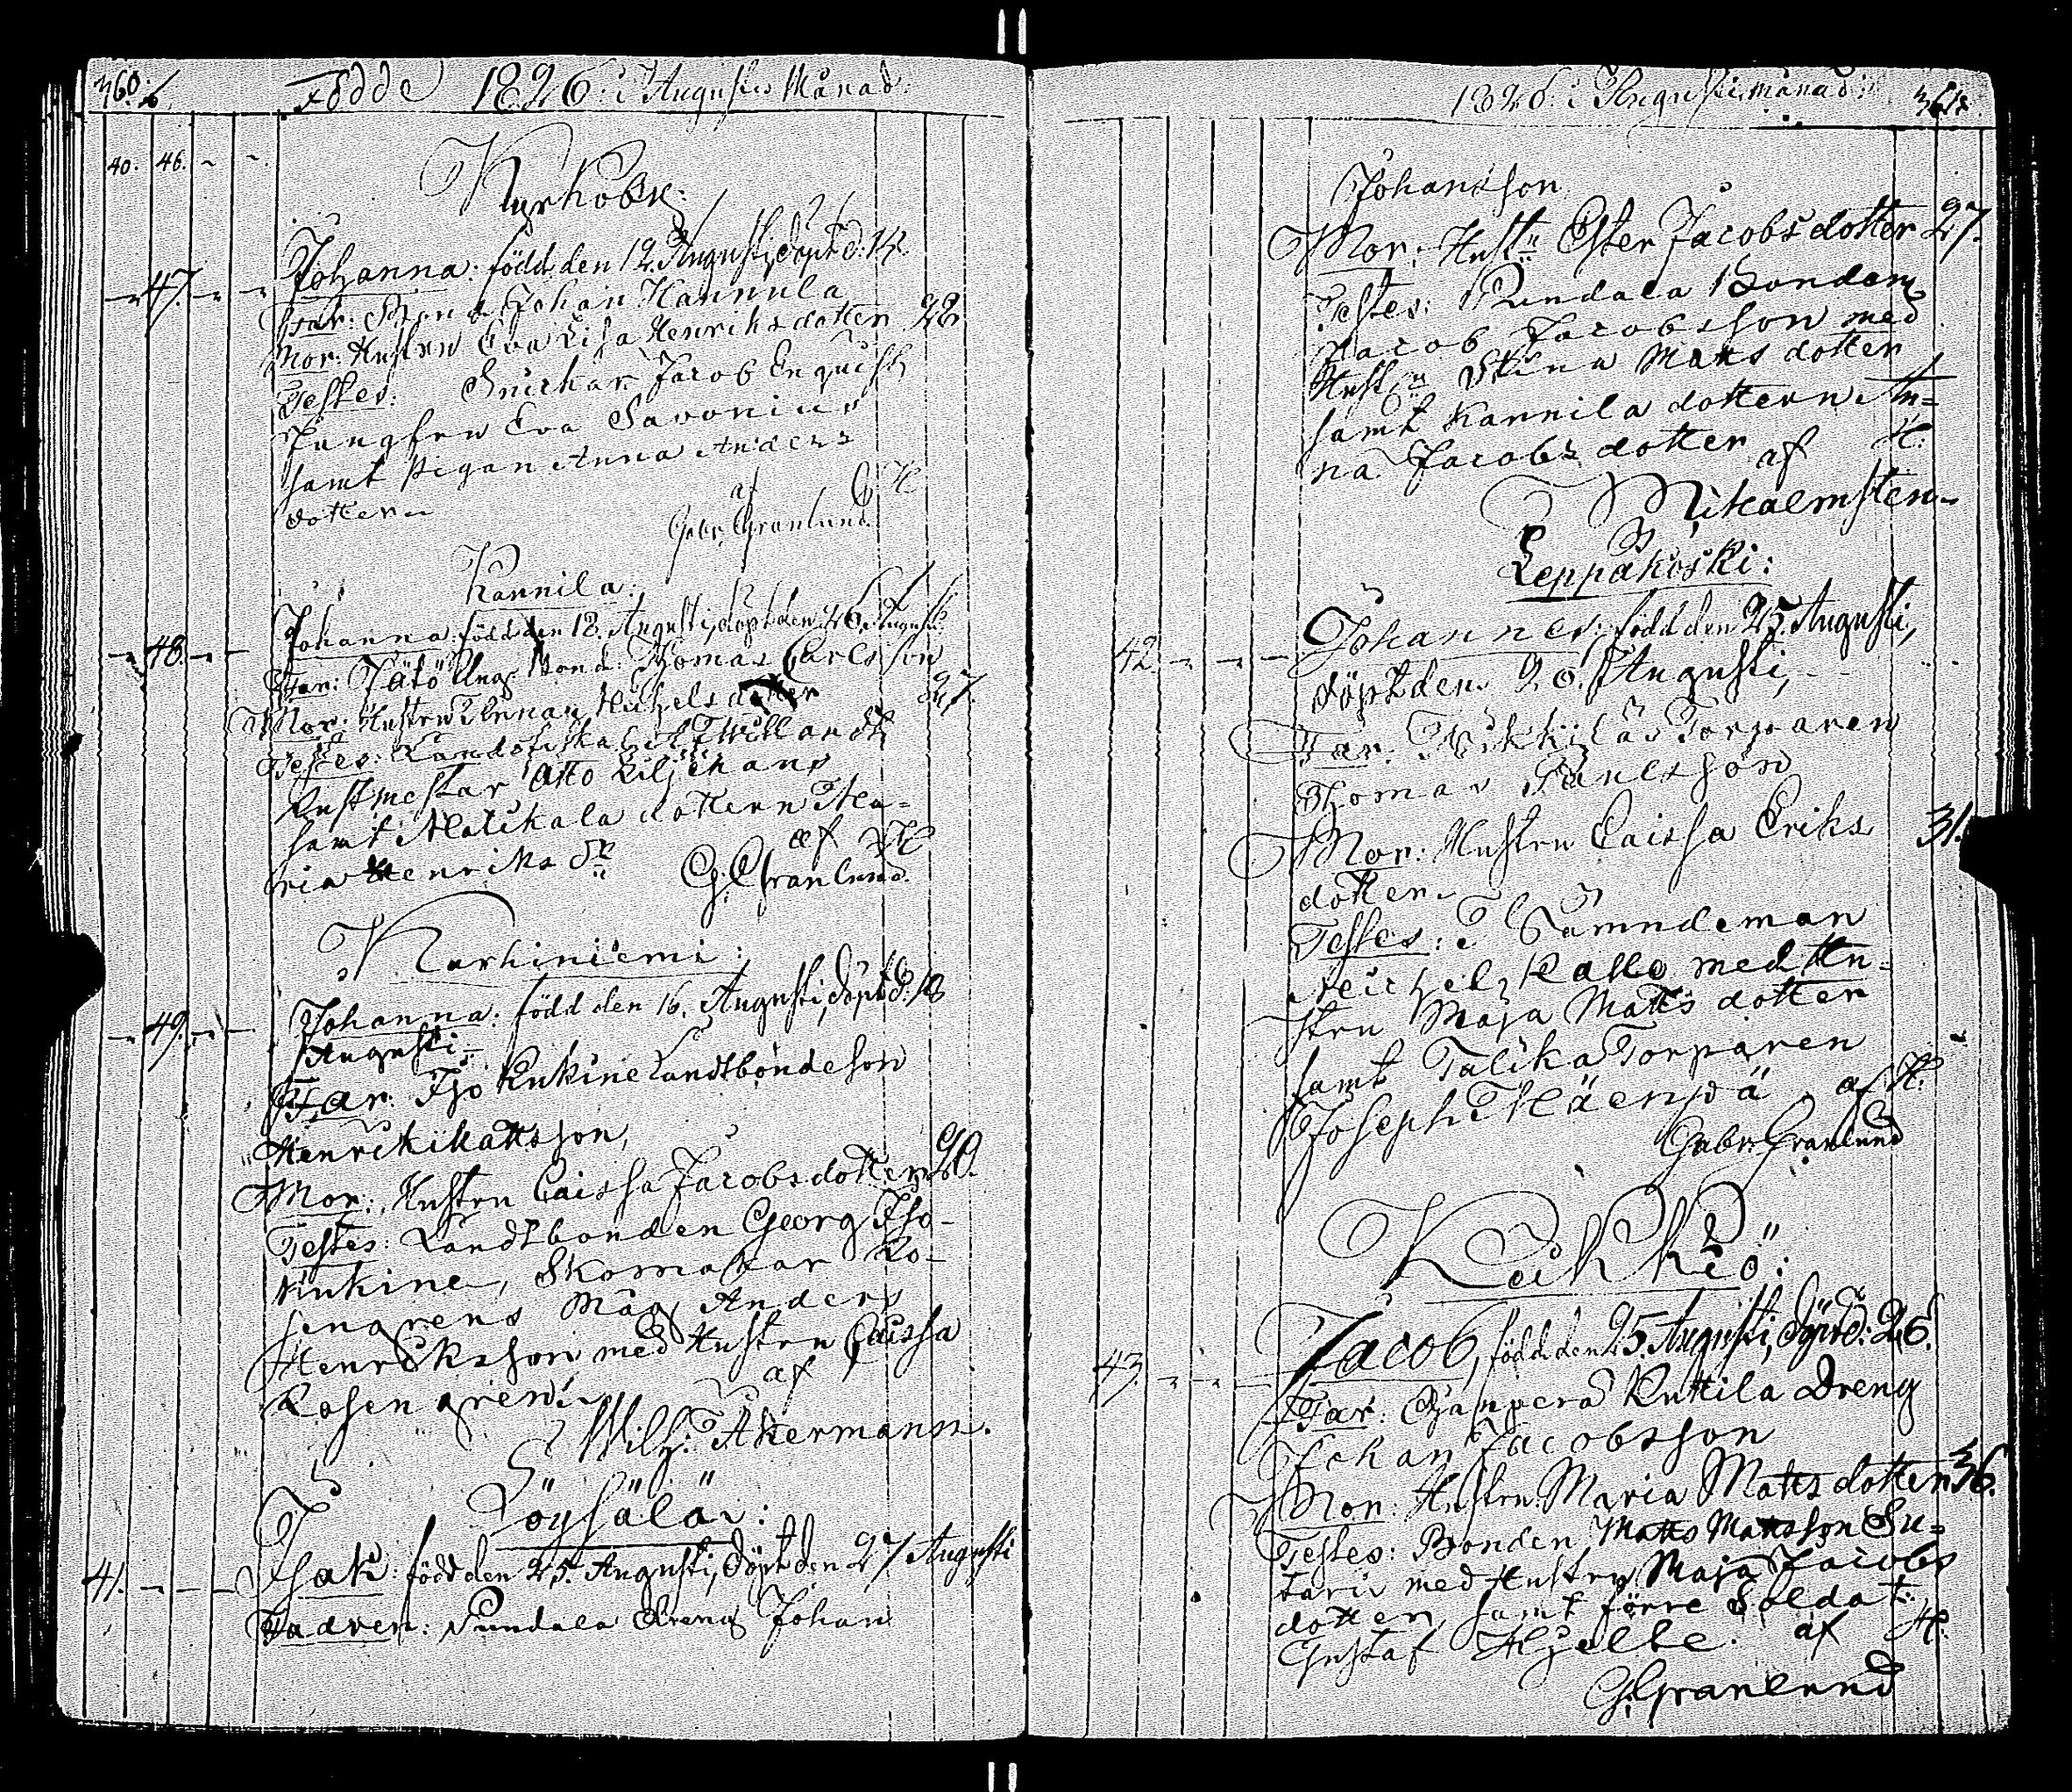 360.
Födde 1826. i Augusti Månad:
40. 46. - -
Kyrkoby:
47. Johanna: född den 12. Augusti, döpt d: 14.
Far: Bond. Johan Hannula
Mor: Hustrun Eva Lisa Henriksdotter 28
Testes: Snickar Jacob Enquist,
Jungfru Eva Savonius
samt pigan Anna Anders
dotter
af H
Gabr. Granlund
Kannila:
48. Johanna: född den 18. Augusti, döpt den 26. Augusti
Far: Bond. Thomas Carlsson
Mor: Hustru Michelsdotter 27.
Testes: Willandt,
Rustmestar Otto Liljehans
samt dottern Ma-
ria Henriks dr
af H
G. Granlund.
Karhiniemi:
49. Johanna: född den 16. Augusti, döpt d: 18
Augusti
Far: Iso Kukine Landtbondeson
Henrik Mattsson,
Mor: Hustru Caissa Jacobsdotter 20.
Testes: Landtbonden Georg Iso-
Kukine, Skomakar Ro-
sengrens Måg Anders
Henriksson med Hustru Caissa
Rosengren.
af
Wilh: Åkermann.
Löysälä:
41. Isak: född den 25. Augusti, döpt den 27 Augusti
Fadren: Pundala Dreng Johan
1826. i Augusti månad: 361.
Johansson
Mor: Hust:u Ester Jacobsdotter 27.
Testes: Pundala Bonden
Jacob Jacobsson med
Hust:u Stina Matts dotter
samt Kannila dottern An=
na Jacobs dotter af H:
Leppäkoski:
42. Johannes: född den 25. Augusti,
döpt den 26. Augusti,
Far: Torparen
Thomas Paulsson
Mor: Hustru Caissa Eriks 31.
dotter
Testes: Nämndeman
Michel Kallo med Hu-
stru Maja Matts dotter
samt Talika Torparen
Joseph Mäenpä af H.
Gabr: Granlund
Keikkiö:
43. Jacob, född den 25. Augusti, döpt d: 26.
Far: Ganpera Kuttila Dreng
Johan Jacobsson
Mor: Hustru Maria Matts dotter 36.
Testes: Bonden Matts Mattsson Su-
tari med Hustru Maja Jacobs
dotter, samt förre Soldat:
Gustaf Hjelte. af H.
G. Granlund